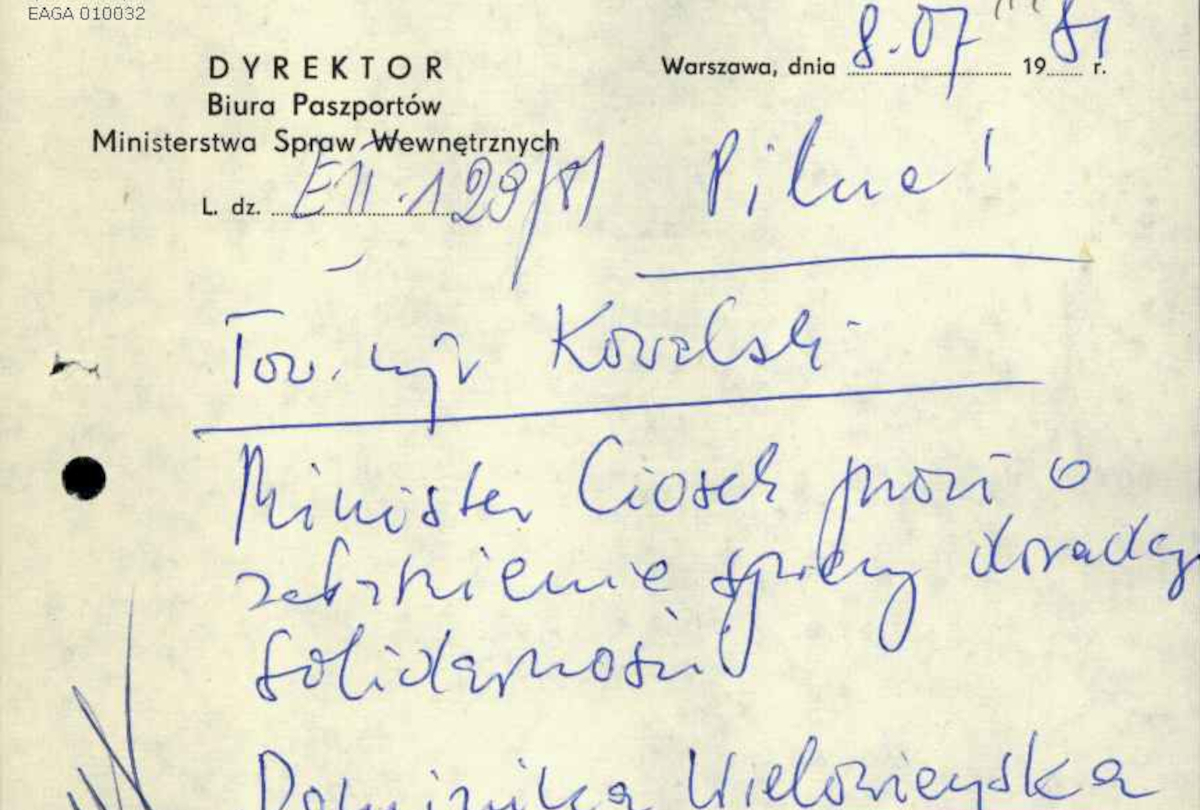 EAGA 010032
DYREKTOR
Biura Paszportów
Ministerstwa Spraw Wewnętrznych
Warszawa, dnia 8.07 1981 r.
L. dz. EII-129/81
Pilne!
Tow. Kowalski
Minister Ciosek prosi o
załatwienie sprawy doradcy
Solidarności
Dominika Wielowieyska